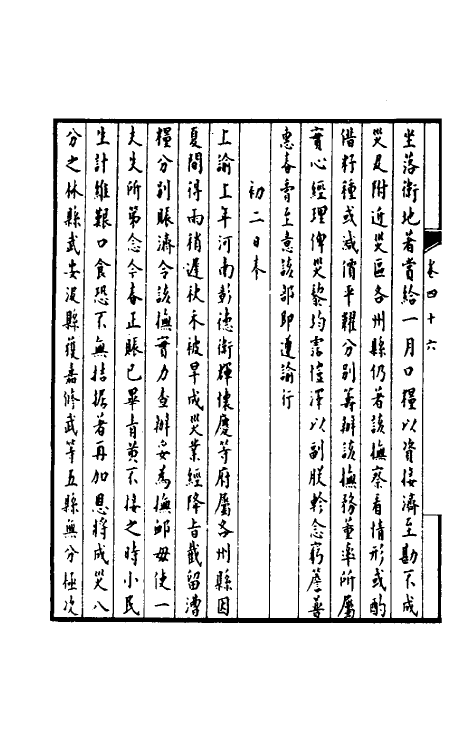 卷四十六
坐落衛地著賞給一月口糧以資接濟至勘不成
災及附近災區各州縣仍著該撫察看情形或酌
借籽種或減價平糶分別籌辦該撫務董率所屬
實心經理俾災黎均霑愷澤以副朕軫念窮簷普
惠春膏至意該部即遵諭行
初二日奉
上諭上年河南彰德衛輝懷慶等府屬各州縣因
夏間得雨稍遲秋禾被旱成災業經降旨截留漕
糧分別賑濟令該撫實力查辦妥為撫卹毋使一
夫失所第念今春正賑已畢青黃不接之時小民
生計維艱口食恐不無拮据著再加恩將成災八
分之林縣武安湯縣獲嘉修武等五縣無分極次